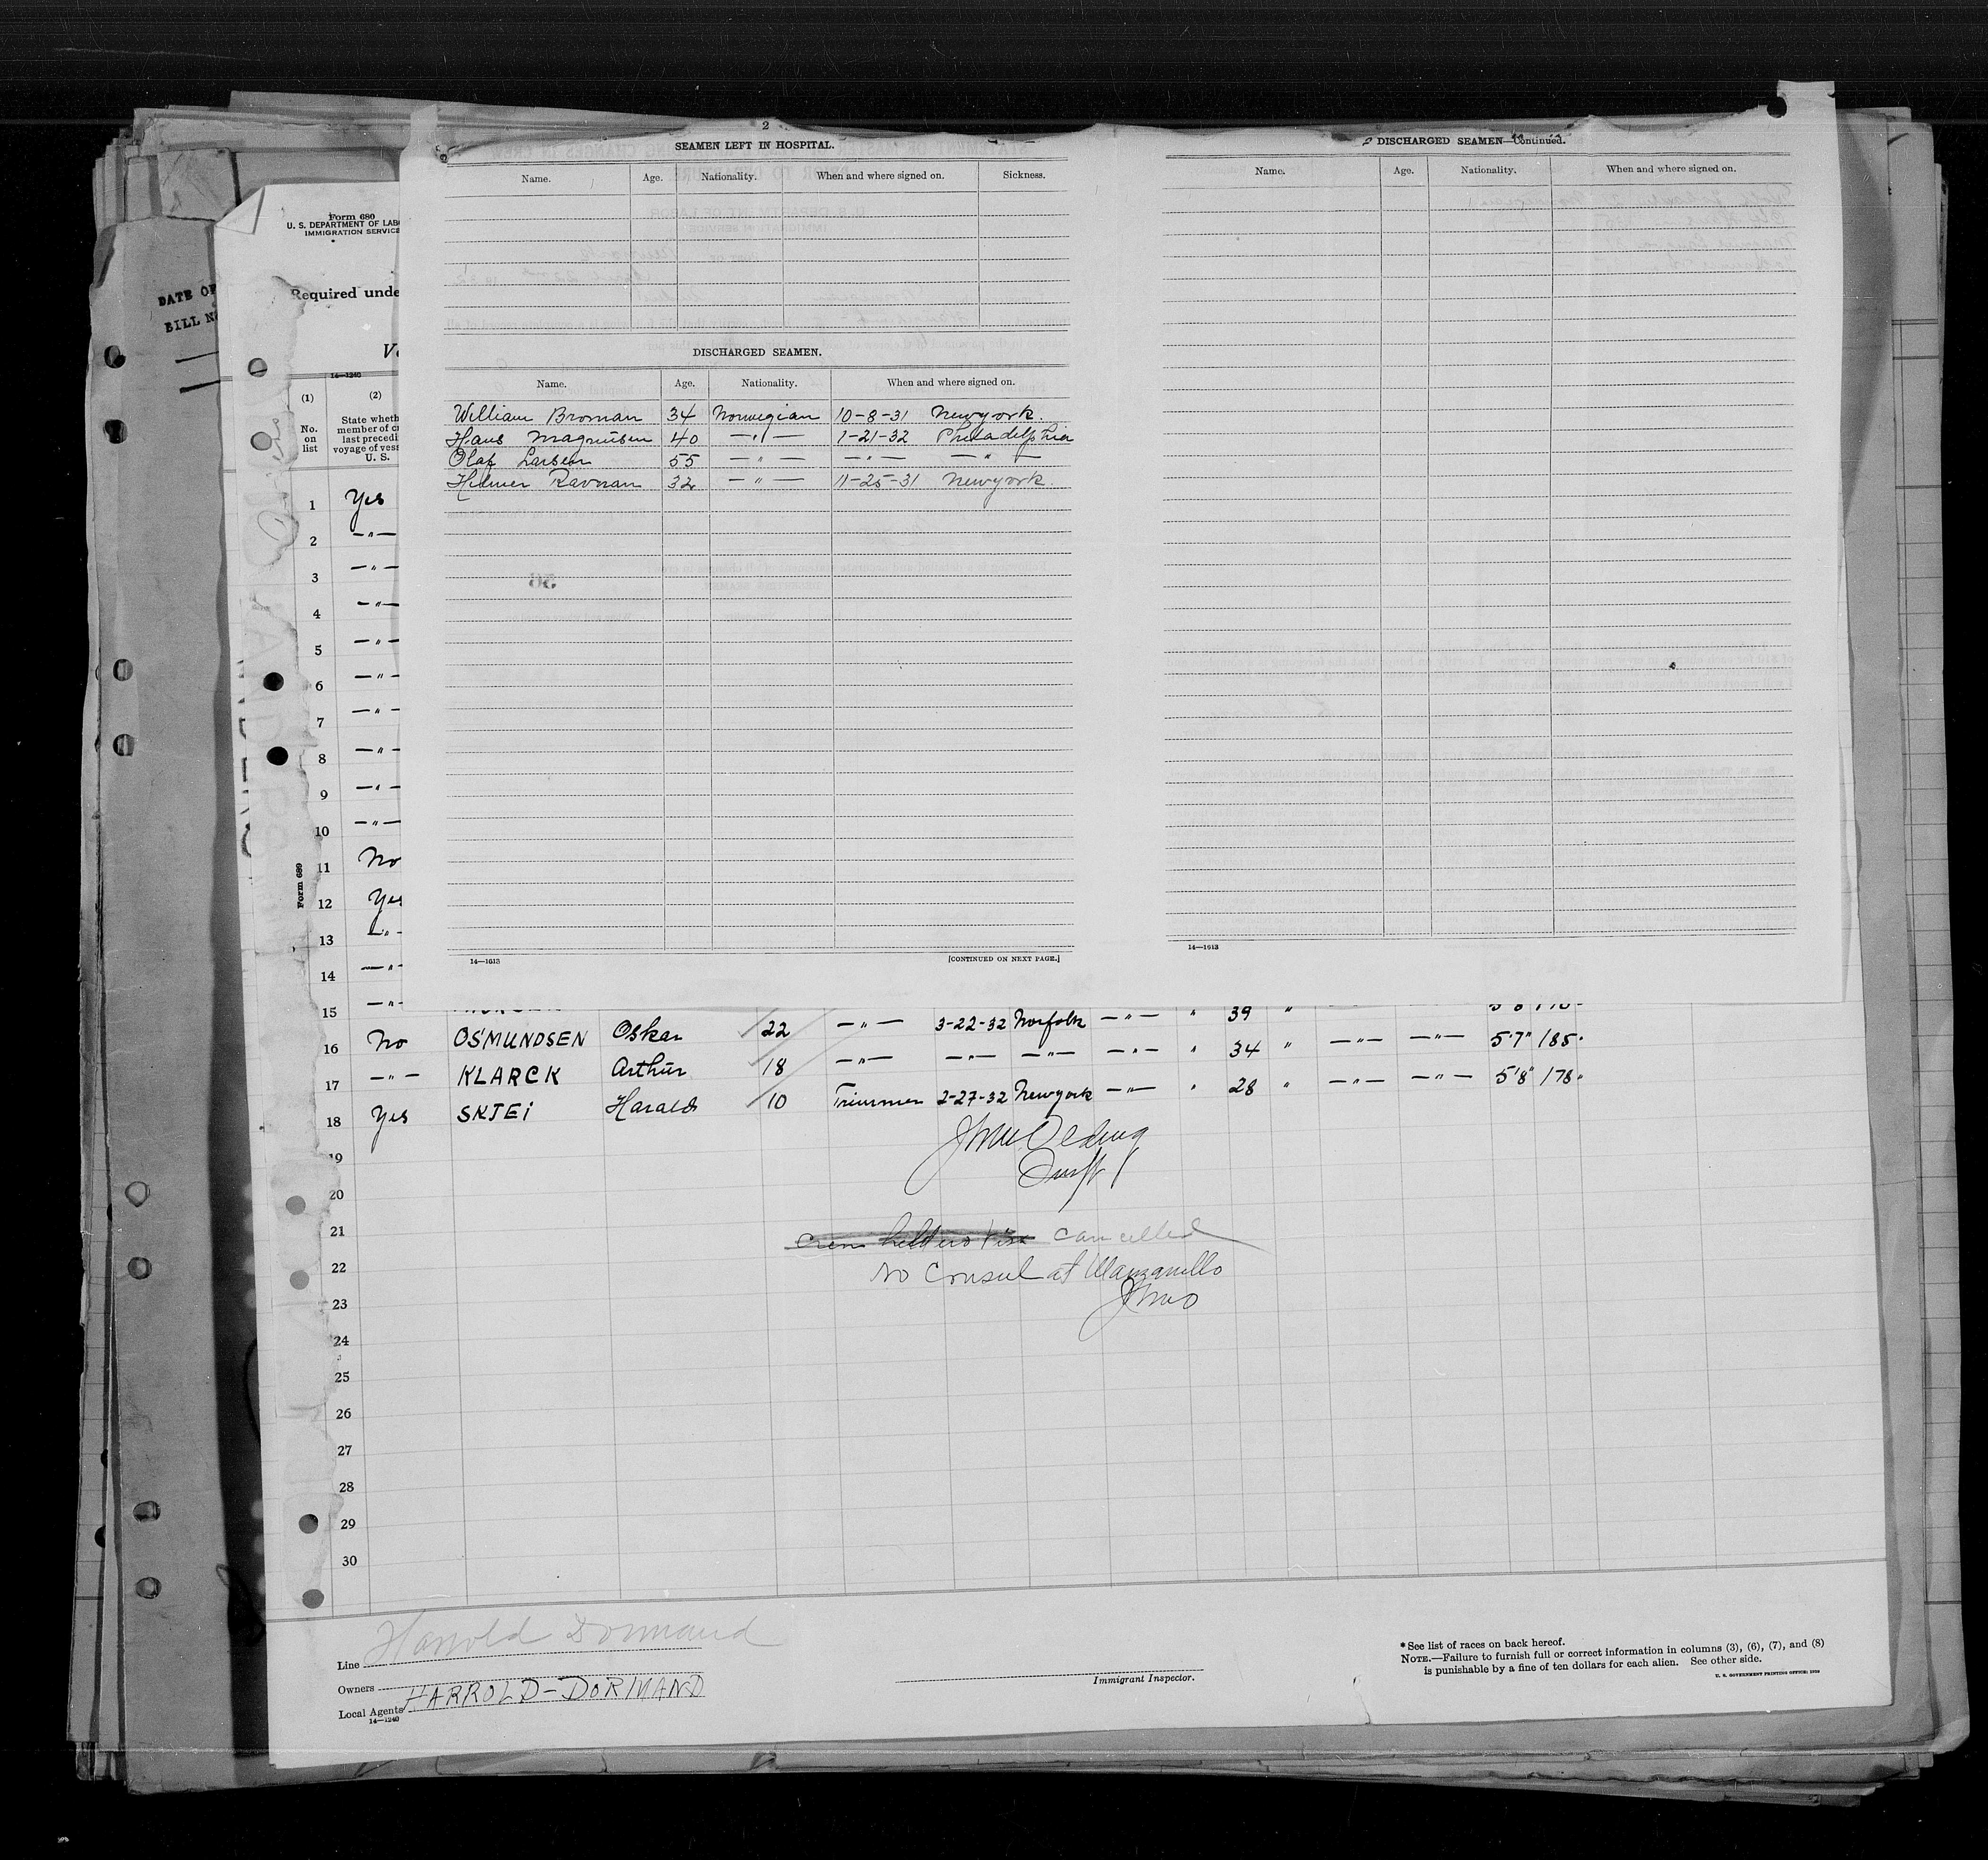 2
SEAMEN LEFT IN HOSPITAL.
Name. Age. Nationality. When and where signed on. Sickness.
DISCHARGED SEAMEN.
Name. Age. Nationality. When and where signed on.
William Broman 34 Norwegian 10-8-31 Newyork.
Hans Magnusen 40 —"— 1-21-32 Philadelphia
Olaf Larsen 55 —"— —"— —"—
Helmer Ravnan 32 —"— 11-25-31 Newyork.
14—1613
[CONTINUED ON NEXT PAGE.]
DISCHARGED SEAMEN—Continued.
Name. Age. Nationality. When and where signed on.
14—1613
DATE OF
BILL N
Form 680
U. S. DEPARTMENT OF LAB
IMMIGRATION SERVICE
Required unde
14—1240
(1) (2)
No. on list
State wheth
member of c
last precedi
voyage of vess
U. S.
Form 680
1 Yes
2 —"—
3 —"—
4 —"—
5 —"—
6 —"—
7 —"—
8 —"—
9 —"—
10 —"—
11 No
12 Yes
13 —"—
14 —"—
15 —"—
16 No OSMUNDSEN Oskar 22 —"— 3-22-32 Norfolk —"— " 39 "
17 —"— KLARCK Arthur 18 —"— —"— —"— —"— " 34 " —"— —"— 5'7" 185"
18 Yes SKJEI Harald 10 Trimmer 2-27-32 Newyork —"— " 28 " —"— —"— 5'8" 178"
19
20
21 cancelled
22 No Consul at Manzanillo
23
24
25
26
27
28
29
30
Line Harrold Dormand
Owners
Local Agents HARROLD-DORMAND
14—1240
Immigrant Inspector.
* See list of races on back hereof.
NOTE.—Failure to furnish full or correct information in columns (3), (6), (7), and (8)
is punishable by a fine of ten dollars for each alien. See other side.
U. S. GOVERNMENT PRINTING OFFICE: 1930